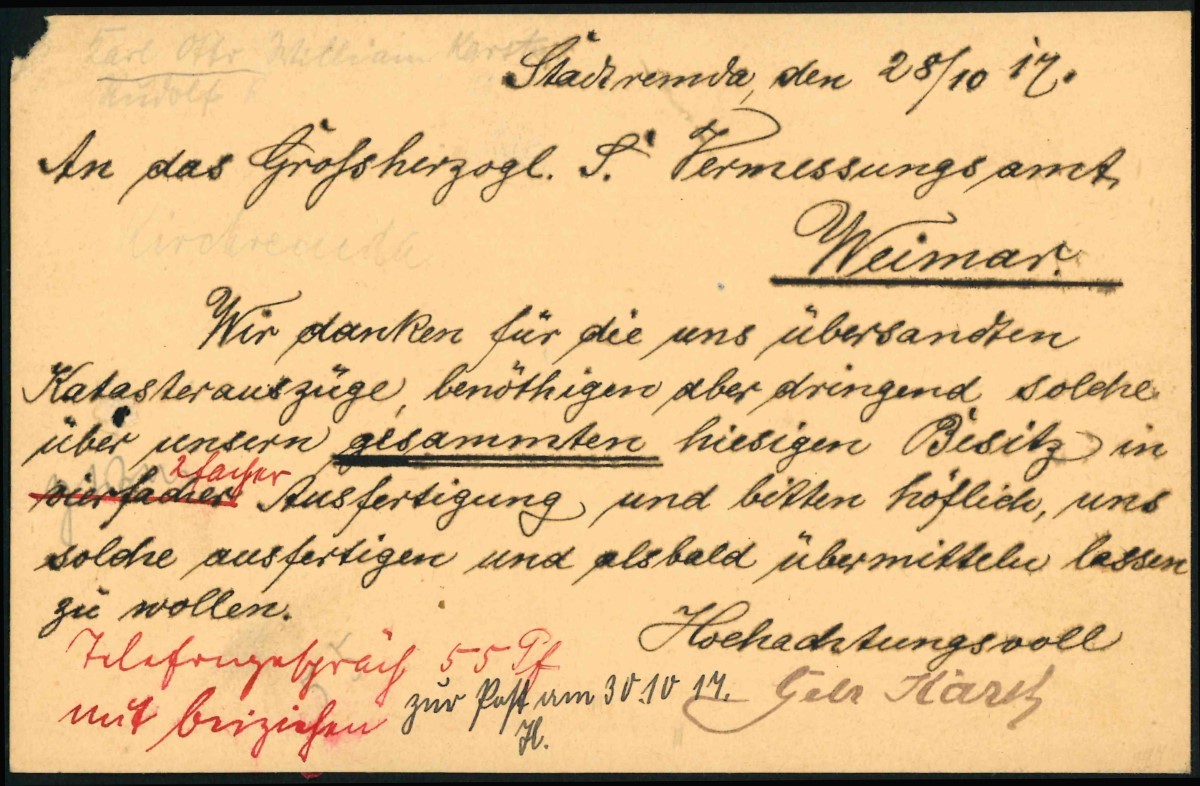 Karl Otto William Karst
Rudolf K
Stadtremda, den 28/10 17.
An das Grossherzogl. S. Vermessungsamt,
Kirchremda
Weimar.
Wir danken für die uns übersandten
Katasterauszüge, benöthigen aber dringend solche
über unsern gesammten hiesigen Besitz in
2facher
vierfacher Ausfertigung und bitten höflich, uns
solche ausfertigen und alsbald übermitteln lassen
zu wollen.
Hochachtungsvoll
Telefongespräch 55 Pf
mit beiziehen
zur Post am 30.10 17.
H.
Gebr Karst